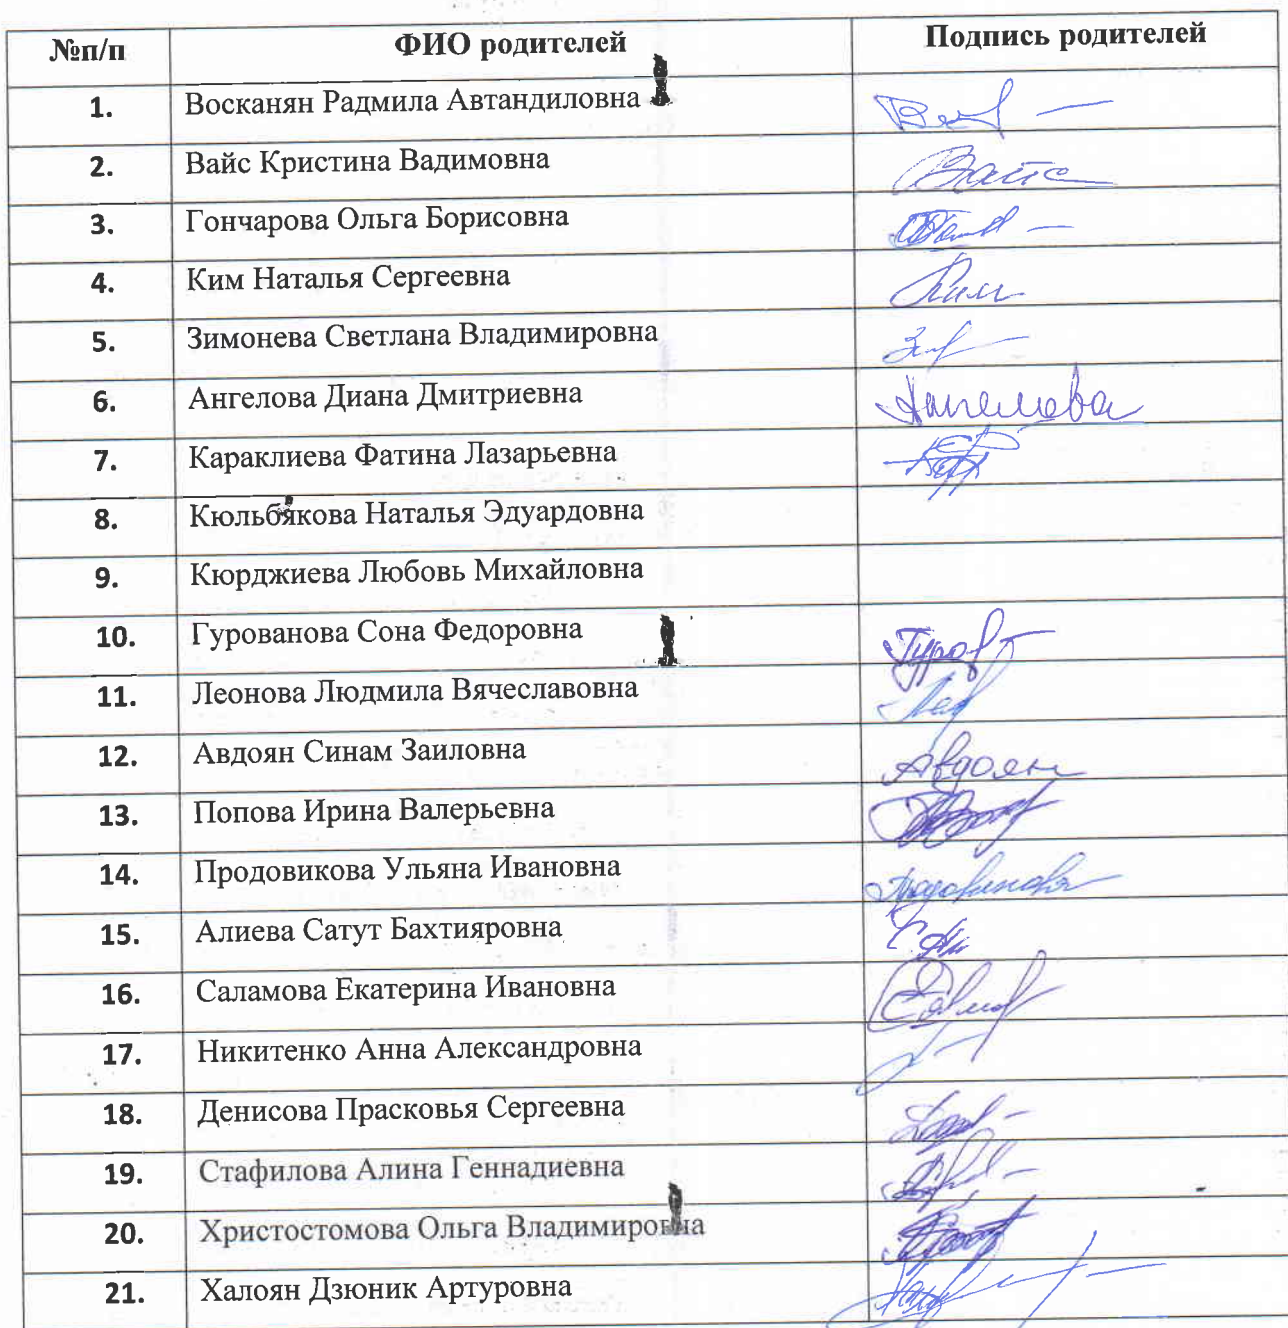 №п/п ФИО родителей Подпись родителей
1. Восканян Радмила Автандиловна
2. Вайс Кристина Вадимовна Вайс
3. Гончарова Ольга Борисовна
4. Ким Наталья Сергеевна Ким
5. Зимонева Светлана Владимировна
6. Ангелова Диана Дмитриевна Ангелова
7. Караклиева Фатина Лазарьевна
8. Кюльбякова Наталья Эдуардовна
9. Кюрджиева Любовь Михайловна
10. Гурованова Сона Федоровна
11. Леонова Людмила Вячеславовна
12. Авдоян Синам Заиловна Авдоян
13. Попова Ирина Валерьевна
14. Продовикова Ульяна Ивановна Продовикова
15. Алиева Сатут Бахтияровна
16. Саламова Екатерина Ивановна
17. Никитенко Анна Александровна
18. Денисова Прасковья Сергеевна
19. Стафилова Алина Геннадиевна
20. Христостомова Ольга Владимировна
21. Халоян Дзюник Артуровна